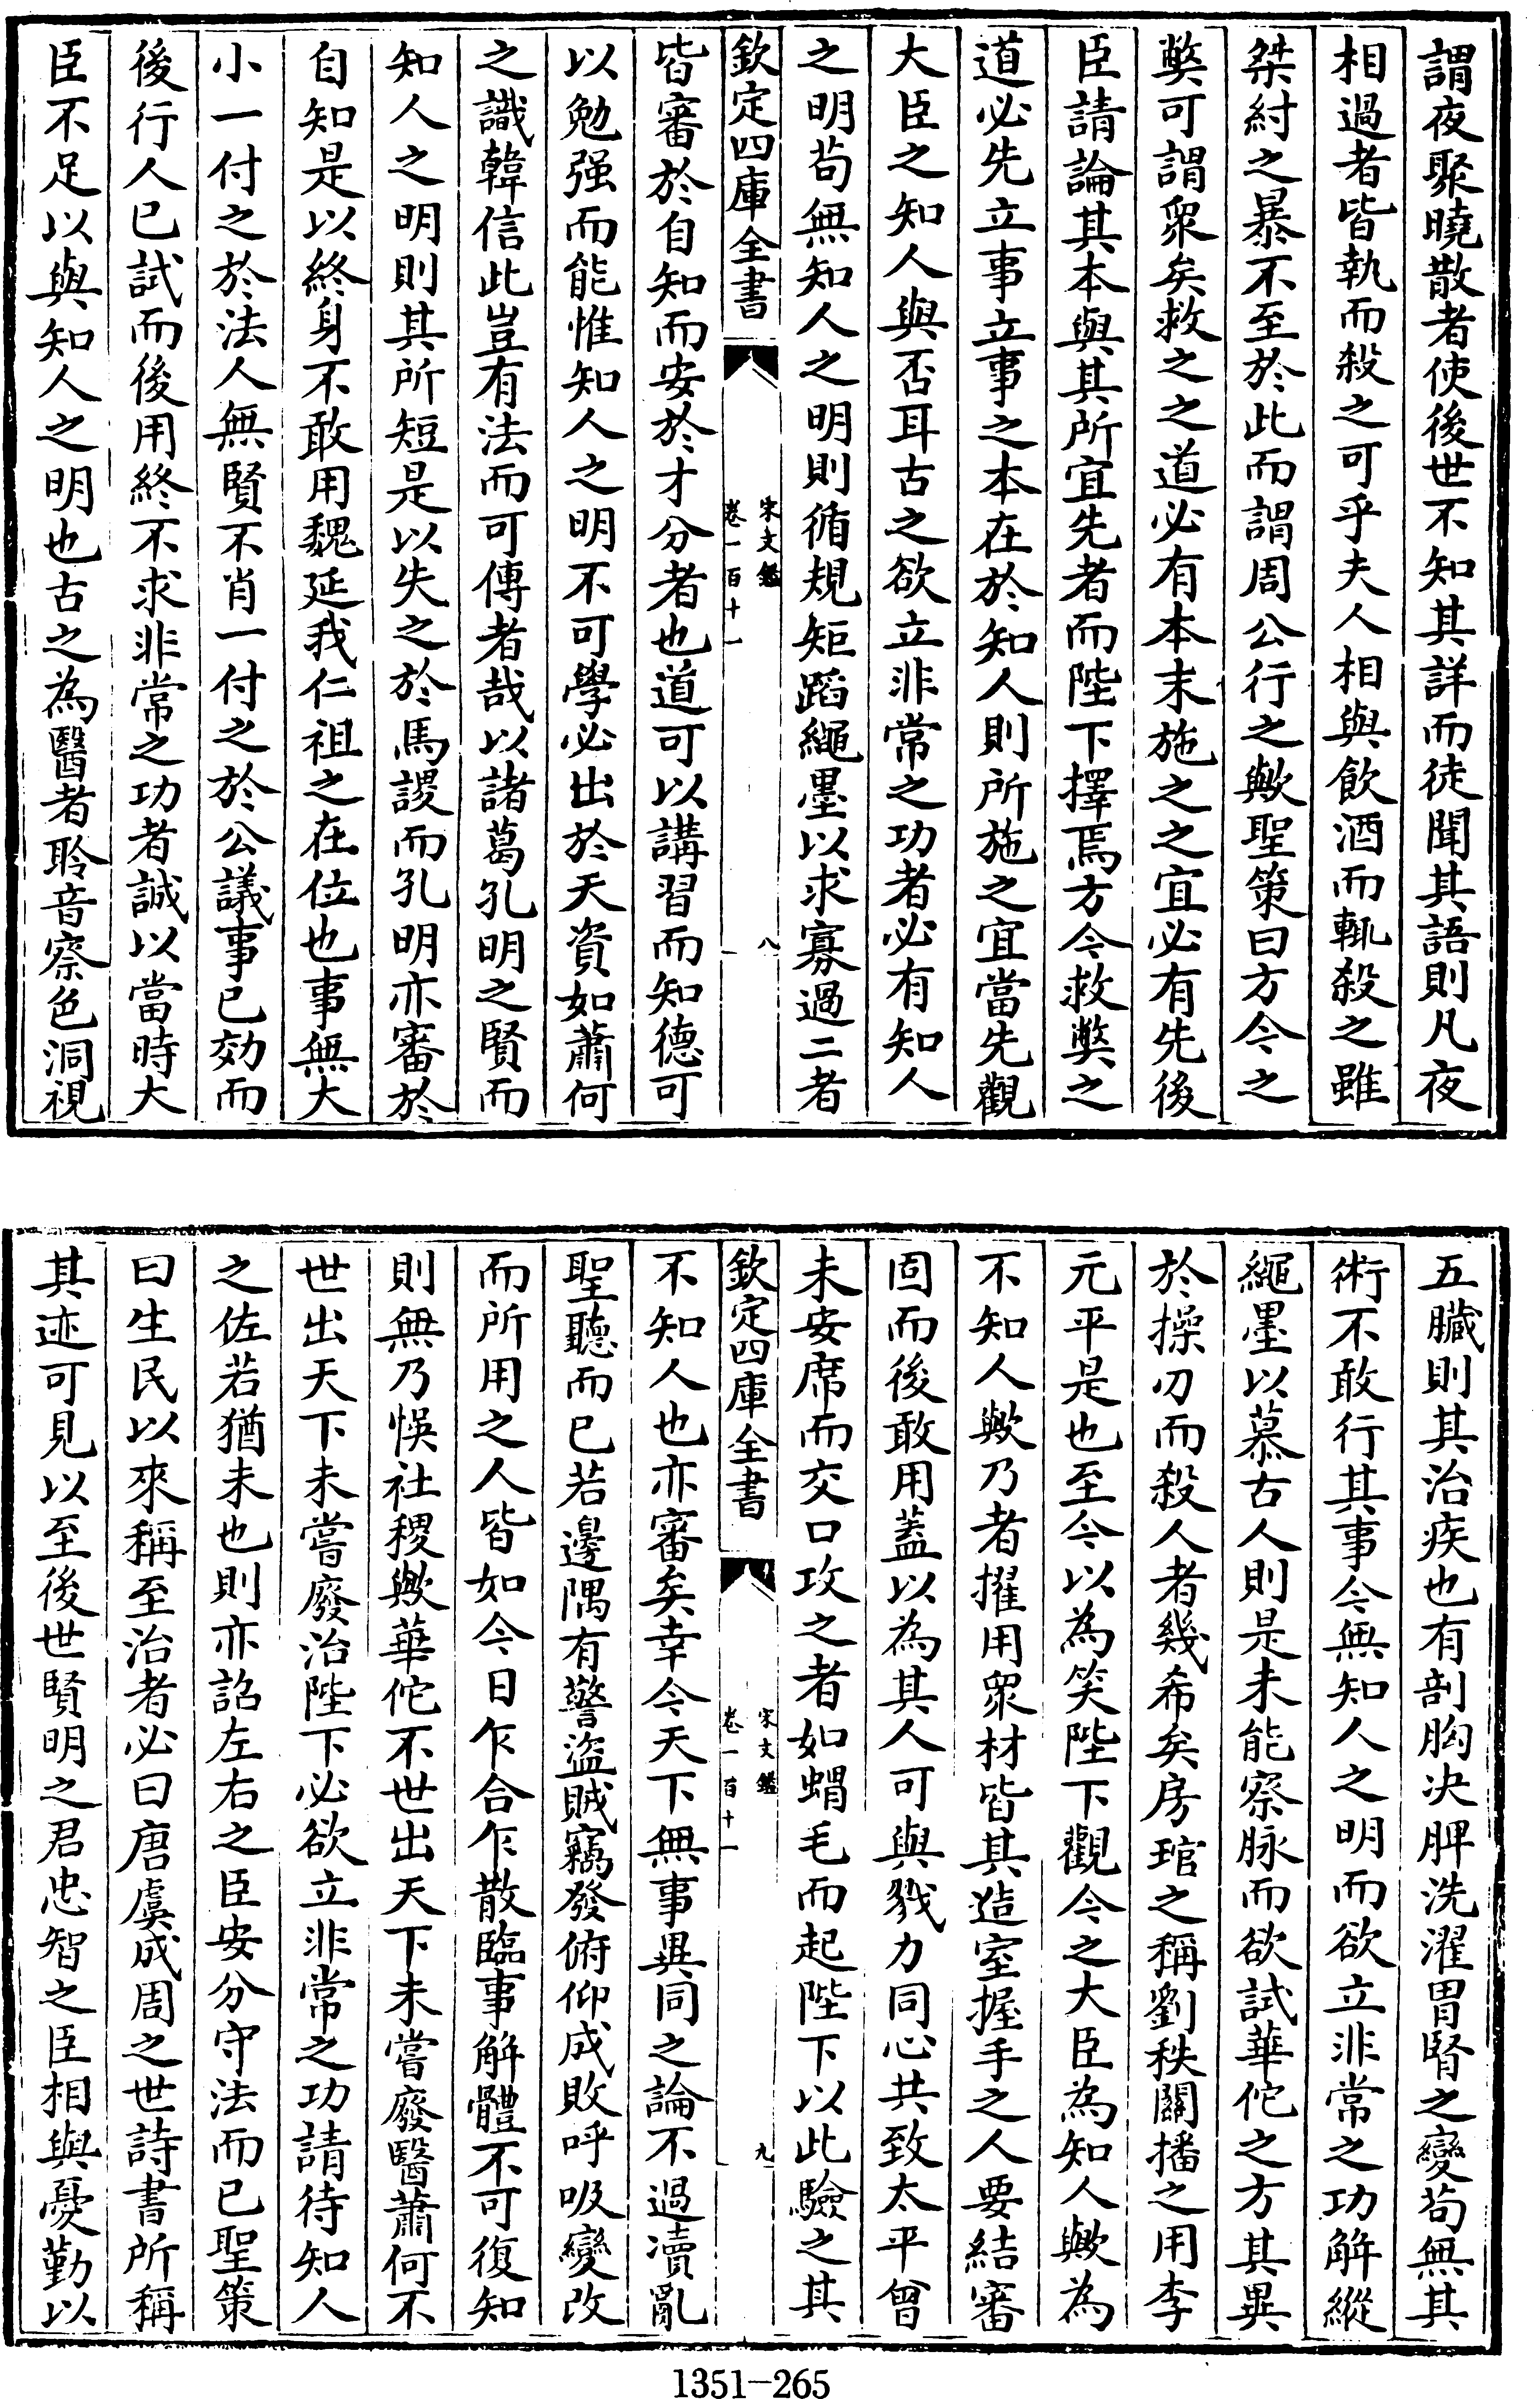 謂夜聚曉散者使後世不知其詳而徒聞其語則凡夜
相過者皆執而殺之可乎夫人相與飲酒而輒殺之雖
桀紂之暴不至於此而謂周公行之歟聖策曰方今之
弊可謂衆矣救之之道必有本末施之之宜必有先後
臣請論其本與其所宜先者而陛下擇焉方今救弊之
道必先立事立事之本在於知人則所施之宜當先觀
大臣之知人與否耳古之欲立非常之功者必有知人
之明苟無知人之明則循規矩蹈繩墨以求寡過二者
欽定四庫全書
宋文鑑
卷一百十一
八
皆審於自知而安於才分者也道可以講習而知德可
以勉强而能惟知人之明不可學必出於天資如蕭何
之識韓信此豈有法而可傳者哉以諸葛孔明之賢而
知人之明則其所短是以失之於馬謖而孔明亦審於
自知是以終身不敢用魏延我仁祖之在位也事無大
小一付之於法人無賢不肖一付之於公議事已効而
後行人已試而後用終不求非常之功者誠以當時大
臣不足以與知人之明也古之為醫者聆音察色洞視
五臟則其治疾也有剖胸決脾洗濯胃腎之變苟無其
術不敢行其事今無知人之明而欲立非常之功解縱
繩墨以慕古人則是未能察脉而欲試華佗之方其異
於操刀而殺人者幾希矣房琯之稱劉秩關播之用李
元平是也至今以為笑陛下觀今之大臣為知人歟為
不知人歟乃者擢用衆材皆其造室握手之人要結審
固而後敢用蓋以為其人可與戮力同心共致太平曾
未安席而交口攻之者如蝟毛而起陛下以此驗之其
欽定四庫全書
宋文鑑
卷一百十一
九
不知人也亦審矣幸今天下無事異同之論不過瀆亂
聖聽而已若邊隅有警盜賊竊發俯仰成敗呼吸變改
而所用之人皆如今日乍合乍散臨事解體不可復知
則無乃悞社稷歟華佗不世出天下未嘗廢醫蕭何不
世出天下未嘗廢治陛下必欲立非常之功請待知人
之佐若猶未也則亦詔左右之臣安分守法而已聖策
曰生民以來稱至治者必曰唐虞成周之世詩書所稱
其迹可見以至後世賢明之君忠智之臣相與憂勤以
1351-265